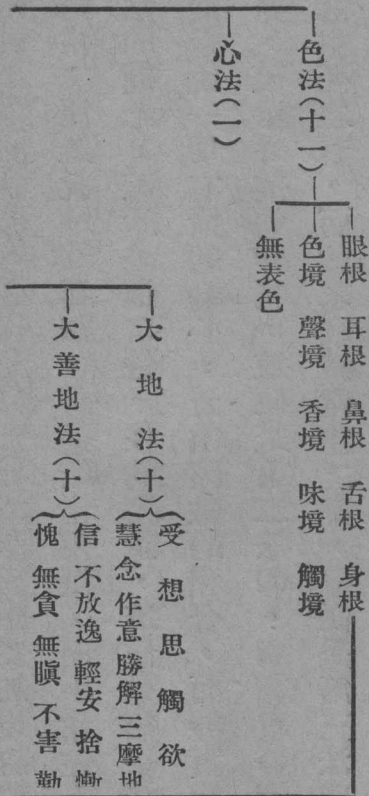 色法（十一）
眼根　耳根　鼻根　舌根　身根
色境　聲境　香境　味境　觸境
無表色
心法（一）
大地法（十）
受　想　思　觸　欲
慧　念　作意　勝解　三摩地
大善地法（十）
信　不放逸　輕安　捨　慚
愧　無貪　無瞋　不害　勤